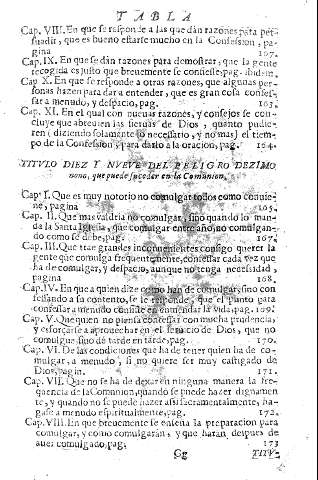 TABLA
Cap. VIII. En que se responde a las que dán razones para persuadir, que es bueno estarse mucho en la Confession, pagina 107.
Cap. IX. En que se dán razones para demostrar, que la gente recogida es justo que breuemente se confiesse, pag. ibidem.
Cap. X. En que se responde a otras razones, que algunas personas hazen para dar a entender, que es gran cosa confessar a menudo, y despacio, pag. 163.
Cap. XI. En el qual con nueuas razones, y consejos se concluye que abreuien las sieruas de Dios, quanto pudieren (diziendo solamente lo necessario, y no mas) el tiempo de la Confession, y para darlo a la oracion, pag. 164.
TITVLO DIEZ Y NVEVE DEL PELIGRO DEZIMO
nono, que puede suceder en la Comunion.
Cap. I. Que es muy notorio no comulgar todos como conuiene, pagina 165.
Cap. II. Que mas valdria no comulgar, sino quando lo manda la Santa Iglesia, que comulgar entre año, no comulgando como se debe, pag. 167.
Cap. III. Que trae grandes inconuenientes consigo querer la gente que comulga frequentemente, confessar cada vez que ha de comulgar, y despacio, aunque no tenga necessidad, pagina 168.
Cap. IV. En que a quien dize como han de comulgar, sino confessando a su contento, se le responde, que el punto para confessar a menudo consiste en enmendar la vida, pag. 169.
Cap. V. Que quien no piensa confessar con mucha prudencia, y esforçarse a aprouechar en el seruicio de Dios, que no comulgue sino de tarde en tarde, pag. 170.
Cap. VI. De las condiciones que ha de tener quien ha de comulgar, a menudo, si no quiere ser muy castigado de Dios, pagin. 171.
Cap. VII. Que no se ha de dexar en ninguna manera la frequencia de la Comunion, quando se puede hazer dignamente, y quando no se puede hazer assi sacramentalmente, hagase a menudo espiritualmente, pag. 172.
Cap. VIII. En que breuemente se enseña la preparacion para comulgar, y como comulgarán, y que harán, despues de auer comulgado, pag. 173
Gg TITV-